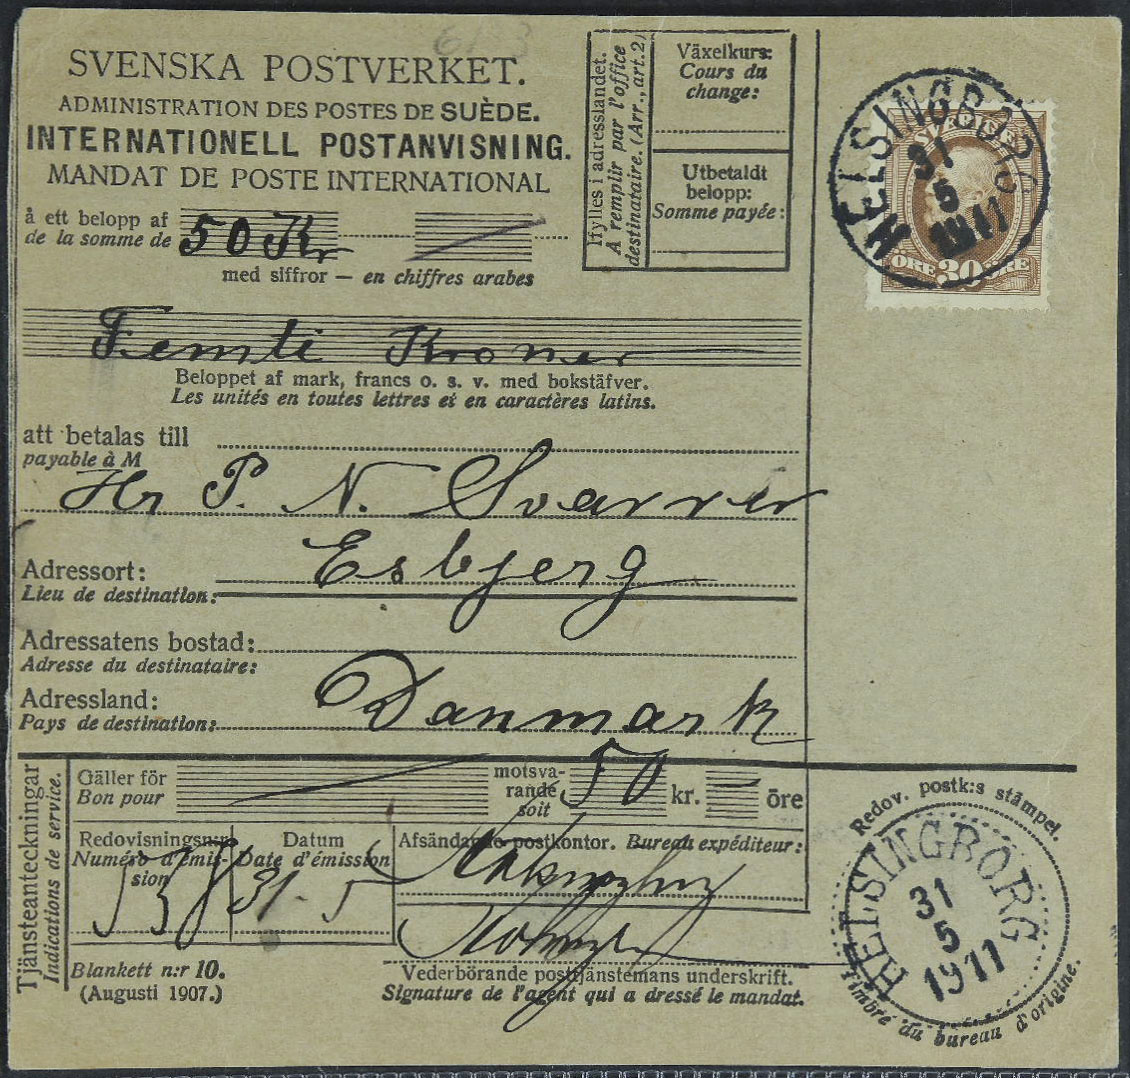 SVENSKA POSTVERKET.
ADMINISTRATION DES POSTES DE SUÈDE.
INTERNATIONELL POSTANVISNING.
MANDAT DE POSTE INTERNATIONAL
å ett belopp af
de la somme de
50 Kr
med siffror — en chiffres arabes
Ifylles i adresslandet.
A remplir par l'office
destinataire. (Arr., art. 2)
Växelkurs:
Cours du
change:
Utbetaldt
belopp:
Somme payée:
HELSINGBORG
31
5
1911
SVERIGE
ÖRE 30 ÖRE
Femti Kroner
Beloppet af mark, francs o. s. v. med bokstäfver.
Les unités en toutes lettres et en caractères latins.
att betalas till
payable à M
Hr P. N. Svarrer
Adressort: Esbjerg
Lieu de destination:
Adressatens bostad:
Adresse du destinataire:
Adressland: Danmark
Pays de destination:
Tjänsteanteckningar
Indications de service.
Gäller för
Bon pour
motsva-
rande
soit
50 kr. — öre
Redovisningsn:r
Numéro d'émis-
sion
Datum
Date d'émission
31. 5
Afsändande postkontor. Bureau expéditeur:
Blankett n:r 10.
(Augusti 1907.)
Vederbörande posttjänstemans underskrift.
Signature de l'agent qui a dressé le mandat.
Redov. postk:s stämpel.
HELSINGBORG
31
5
1911
Timbre du bureau d'origine.